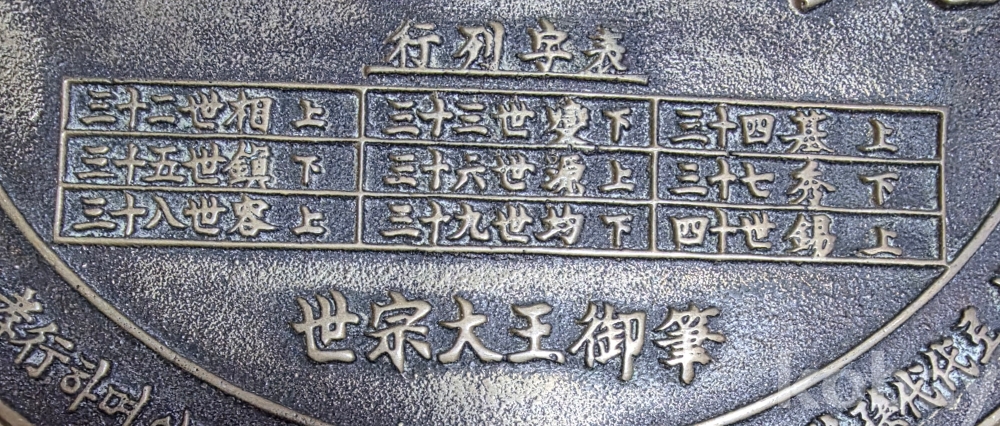 行列字表
三十二世相 上 三十三世變 下 三十四 基 上
三十五世鎭 下 三十六世源 上 三十七 秦 下
三十八世容 上 三十九世均 下 四十世錫 上
世宗大王御筆
孝行하며
代代